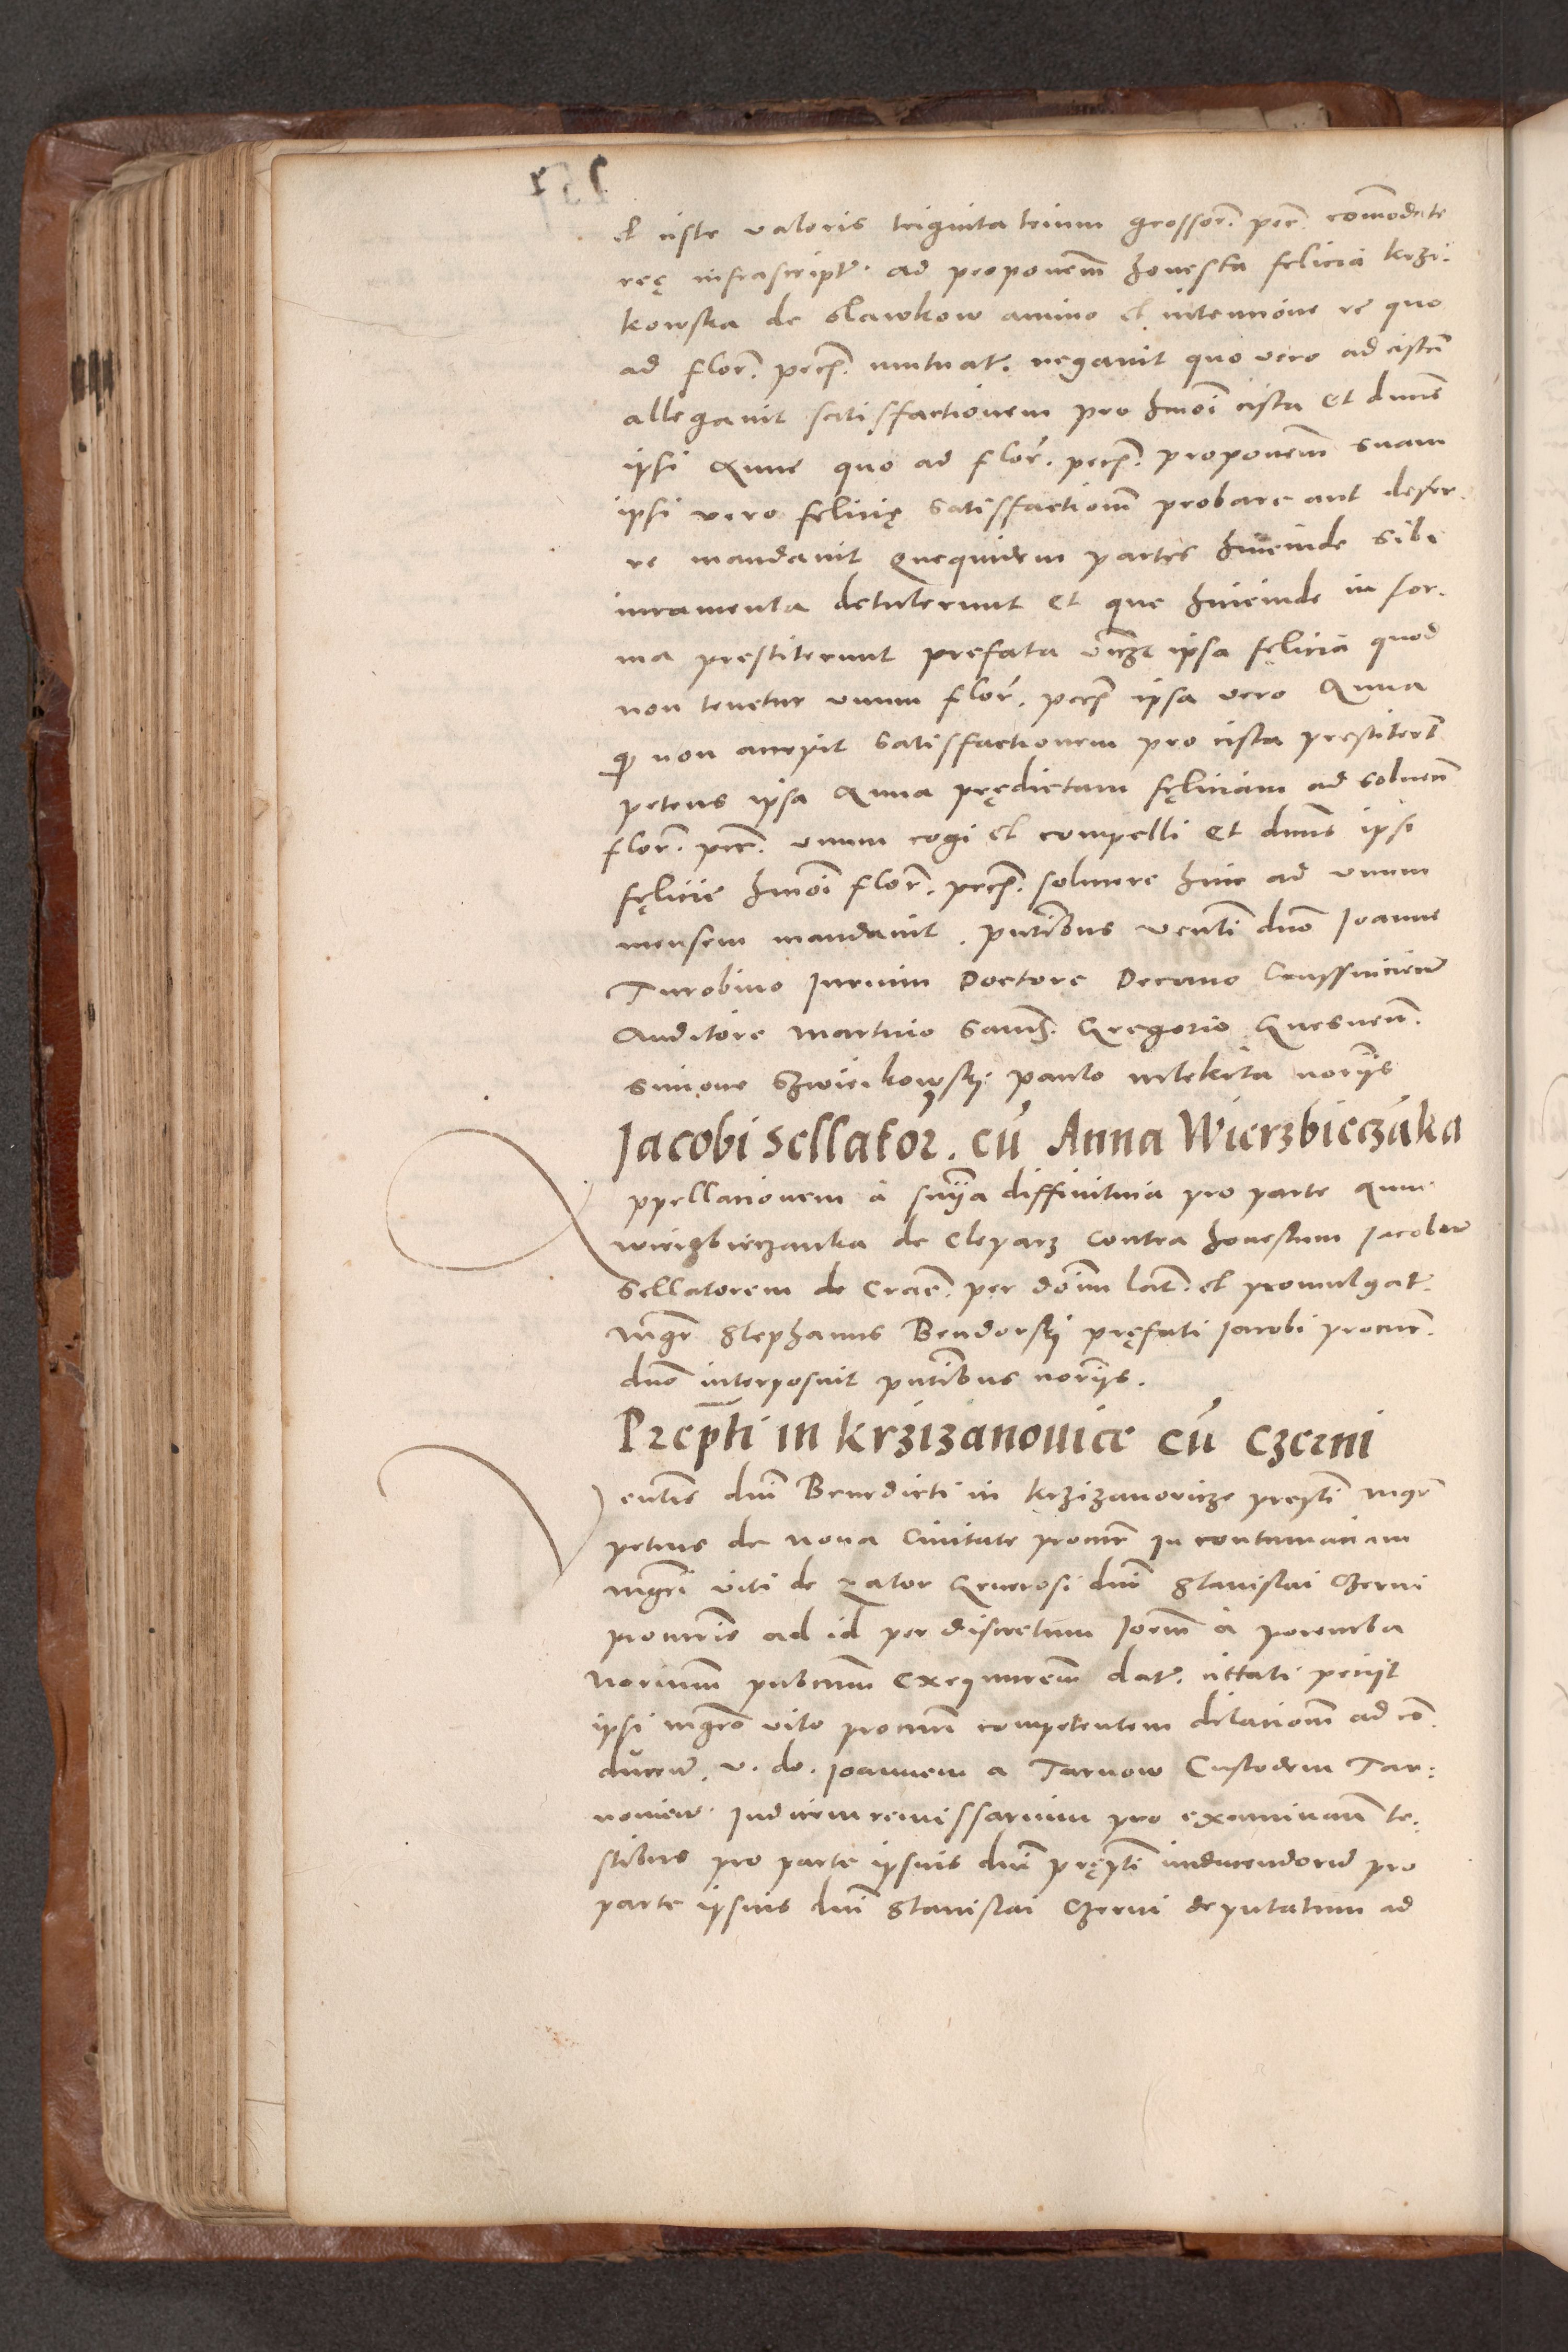 et ciste valoris triginta trium grossor. pec. comodate
reę infrascript. ad proponem honesta felicia krzi.
kowska de Slawkow animo et intentione re quo
ad flor. pccs. mutuat. negavit quo vero ad cistā
allegavit satisfactionem pro hmōi cista Et dnus
ipsi Anne quo ad flor. pccs. proponem suam
ipsi vero felicię satisfactionē probare aut defer.
re mandavit Quequidem partes hincinde sibi
iuramenta detulerunt et que hincinde in for.
ma prestiterunt prefata vicz ipsa felicia quod
non tenetur unum flor. pccs ipsa vero Anna
q non accepit satisfactionem pro cista prestiterūt
petens ipsa Anna prędictam fęliciam ad soluen
flor. pcc. unum cogi et compelli Et dnus ipsi
fęlicie hmōi flor. pccs. soluere hinc ad unum
mensem mandavit. pntibus venli dno Joanne
Turobino Jurium Doctore Decano
Auditore martino Gregorio Gnesnen.
simone Szwiel̨kowski paulo noriis
Jacobi Sellator. cū Anna Wierzbieczāka
Appellacionem à snīia diffinitiva pro parte Anne
wierzbieczanka de Cleparz contra honestum Jacobū
Sellatorem de Crac. per dnum lat. et promulgat.
Mgr Stephanus Bendorski pręfati Jacobi procur.
dno interposuit pntibus noriis.
Prepti in krzizanovice cū Czerni
Ventis dni Benedicti in krzizanovicze prepti mgr
petrus de nova Civitate procur In contumaciam
mgri viti de zator Generosi dni Stanislai Czerni
procuris ad id per discretum Joem à poremba
Norium publicum exequutem dat. cittati peciit
ipsi mgro vito procuri competentem dilacionē ad
ducend. v. do. Joannem a Tarnow Custodem Tar.
novien. Judicem remissarium pro examinan te.
stibus pro parte ipsius dni prępti inducendorū pro
parte ipsius dni Stanislai Czerni deputatum ad